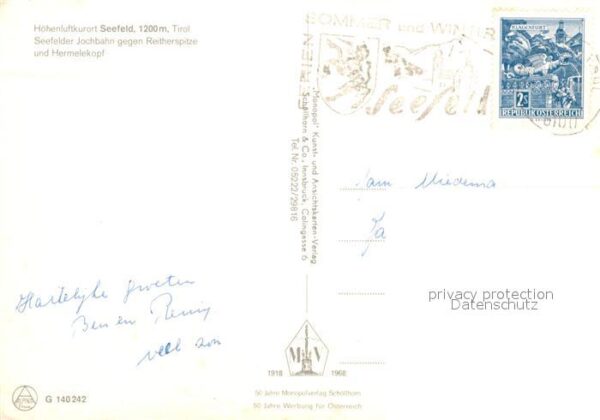 Höhenluftkurort Seefeld, 1200 m, Tirol
Seefelder Jochbahn gegen Reitherspitze
und Hermelekopf
SOMMER und WINTER
Seefeld
KLAGENFURT
2S
REPUBLIK ÖSTERREICH
„Monopol" Kunst- und Ansichtskarten-Verlag
Schöllhorn & Co., Innsbruck, Colingasse 6
Tel. Nr. 05222/29816
Fam Miedema
Hartelijke groeten
Ben en
veel zon
privacy protection
Datenschutz
M V
1918 1968
50 Jahre Monopolverlag Schöllhorn
50 Jahre Werbung für Österreich
G 140242